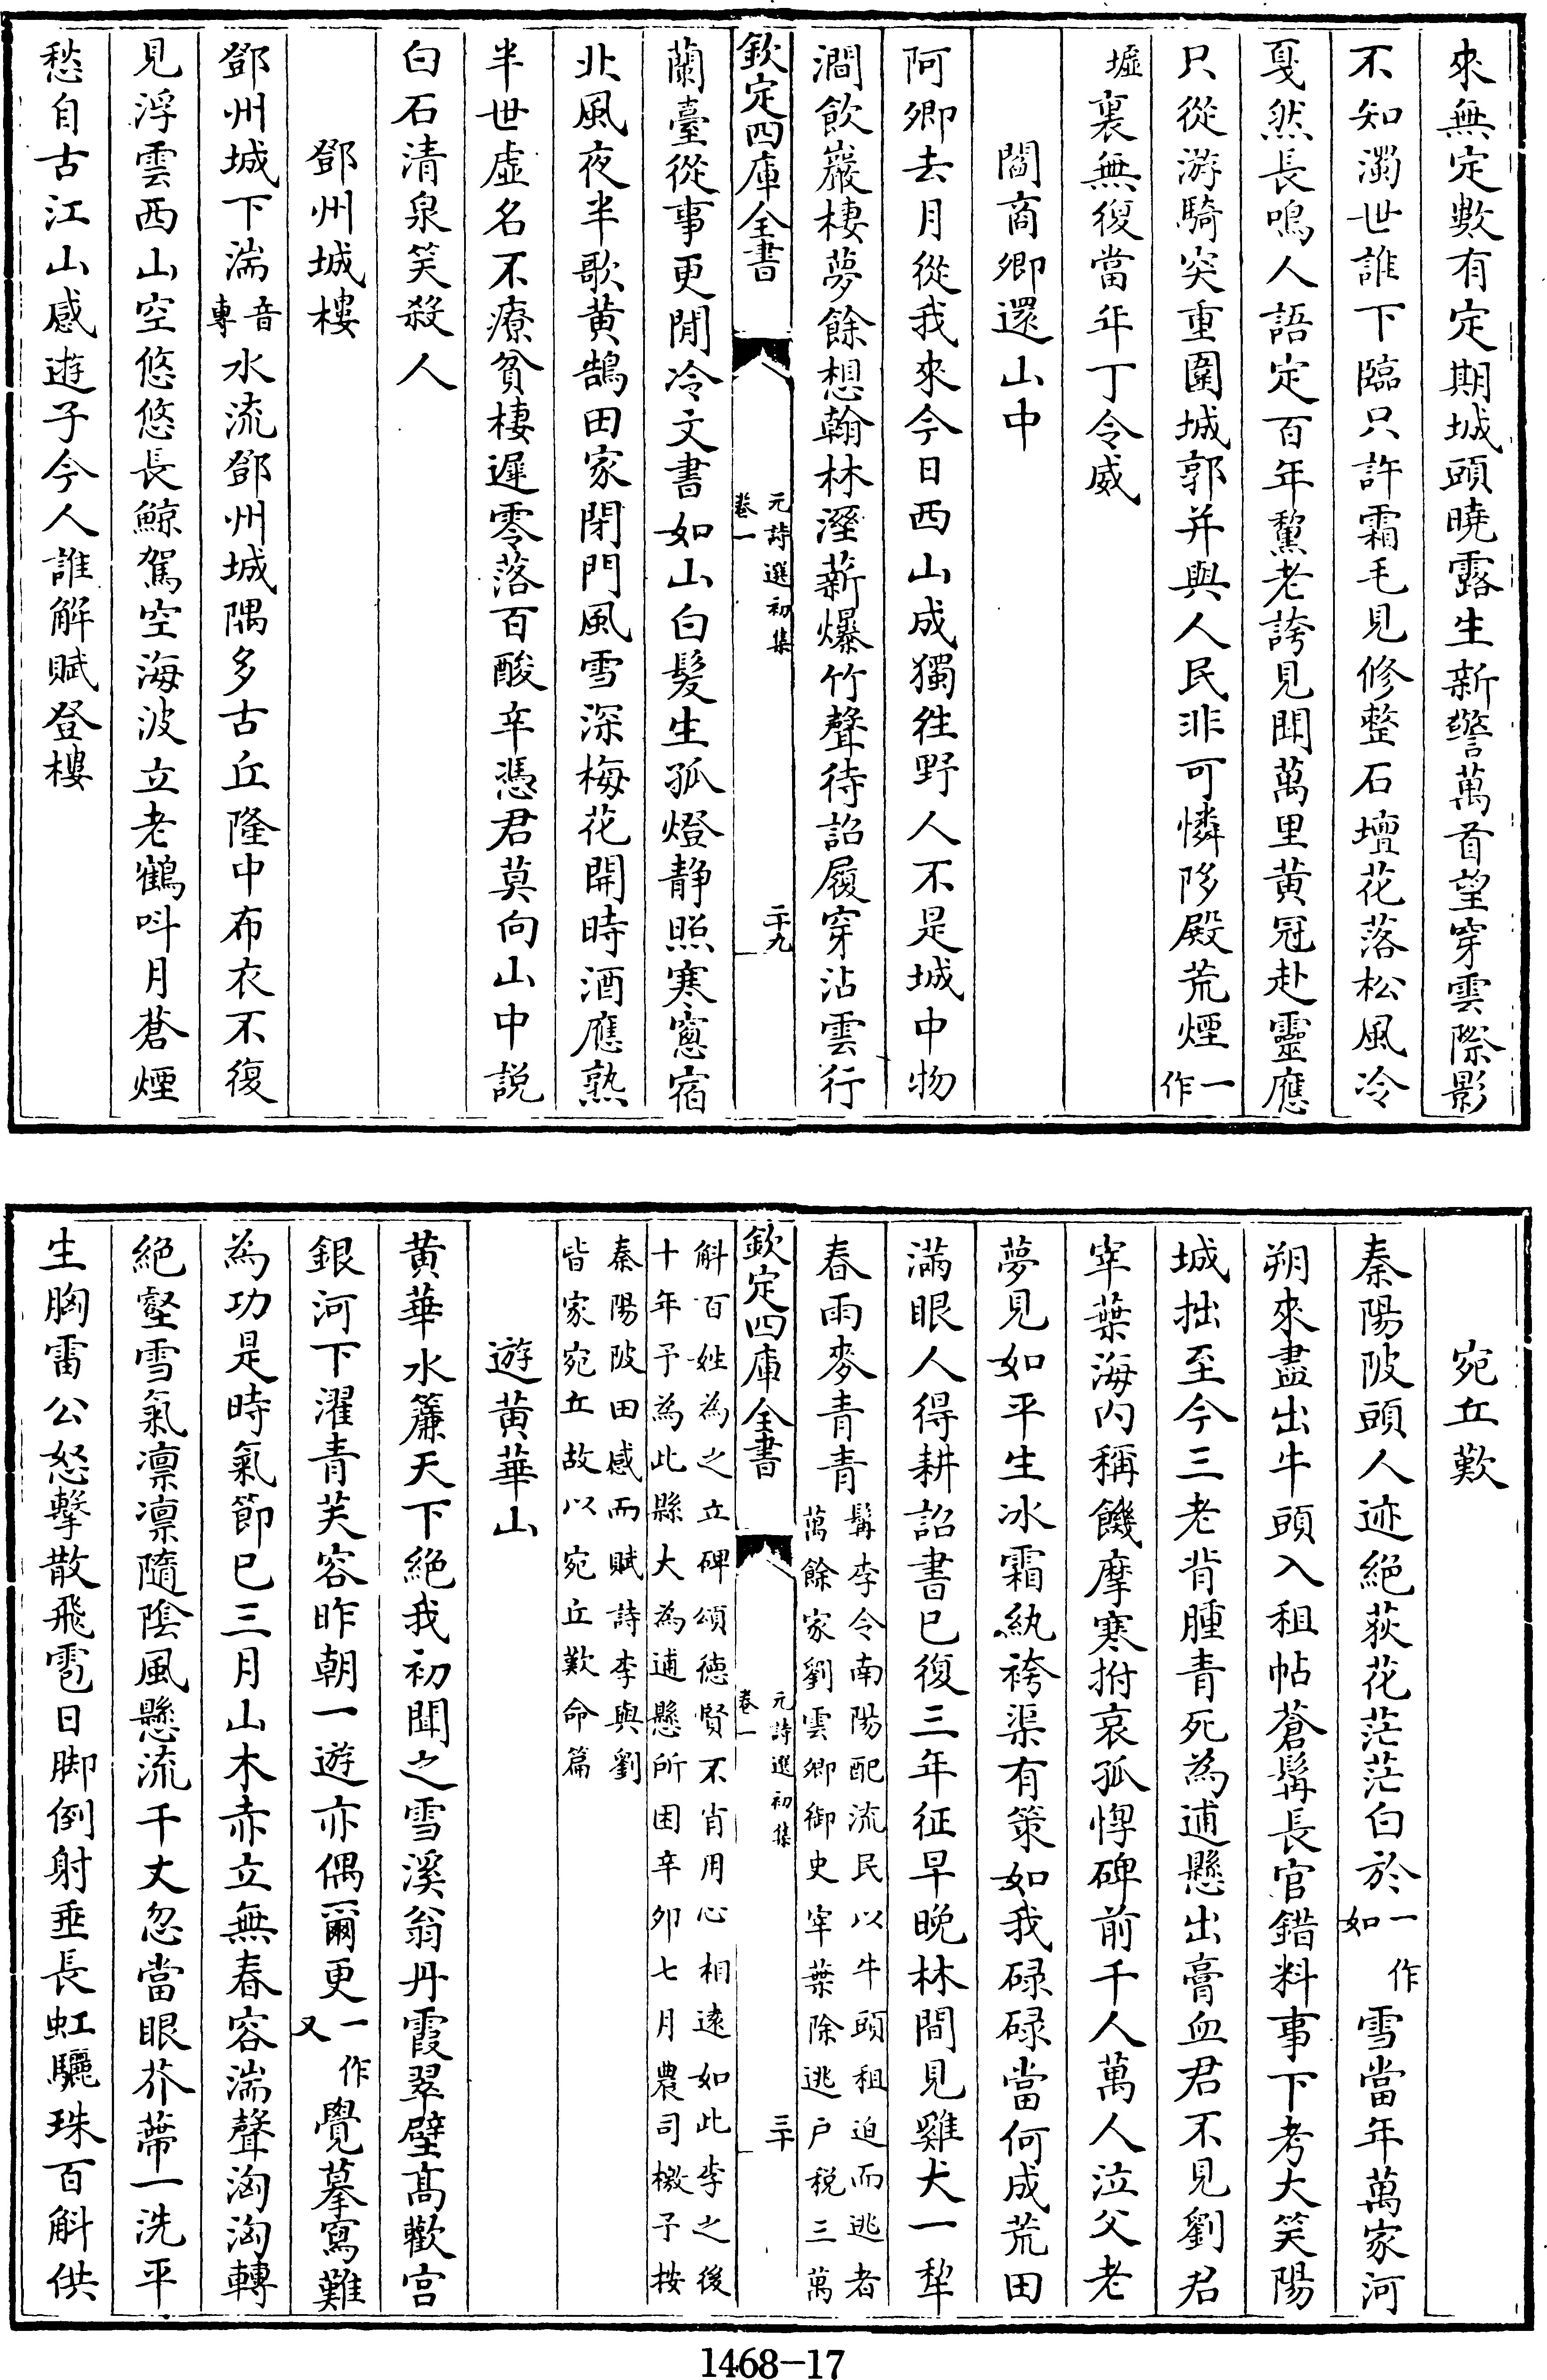 來無定數有定期城頭曉露生新警萬首望穿雲際影
不知濁世誰下臨只許霜毛見修整石壇花落松風冷
戛然長鳴人語定百年黧老誇見聞萬里黄冠赴靈應
只從游騎突重圍城郭并與人民非可憐陊殿荒煙一作
墟裏無復當年丁令威
閻商卿還山中
阿卿去月從我來今日西山成獨往野人不是城中物
澗飲巖棲夢餘想翰林溼薪爆竹聲待詔履穿沾雲行
欽定四庫全書
元詩選初集
卷一
二十九
蘭臺從事更閒冷文書如山白髮生孤燈静照寒窻宿
北風夜半歌黄鵠田家閉門風雪深梅花開時酒應熟
半世虛名不療貧棲遲零落百酸辛憑君莫向山中説
白石清泉笑殺人
鄧州城樓
鄧州城下湍音專水流鄧州城隅多古丘隆中布衣不復
見浮雲西山空悠悠長鯨駕空海波立老鶴呌月蒼煙
愁自古江山感遊子今人誰解賦登樓
宛丘歎
秦陽陂頭人迹絶荻花茫茫白於一作如雪當年萬家河
朔來盡出牛頭入租帖蒼髯長官錯料事下考大笑陽
城拙至今三老背腫青死為逋懸出膏血君不見劉君
宰葉海内稱饑摩寒拊哀孤惸碑前千人萬人泣父老
夢見如平生冰霜紈袴渠有策如我碌碌當何成荒田
滿眼人得耕詔書已復三年征早晚林間見雞犬一犂
春雨麥青青髯李令南陽配流民以牛頭租迫而逃者
萬餘家劉雲卿御史宰葉除逃户税三萬
欽定四庫全書
元詩選初集
卷一
三十
斛百姓為之立碑頌徳賢不肖用心相逺如此李之後
十年予為此縣大為逋懸所困辛卯七月農司檄予按
秦陽陂田感而賦詩李與劉
皆家宛丘故以宛丘歎命篇
遊黄華山
黄華水簾天下絶我初聞之雪溪翁丹霞翠壁髙歡宫
銀河下濯青芙容昨朝一遊亦偶爾更一作又覺摹寫難
為功是時氣節已三月山木赤立無春容湍聲洶洶轉
絶壑雪氣凛凛隨陰風懸流千丈忽當眼芥蔕一洗平
生胸雷公怒擊散飛雹日脚倒射垂長虹驪珠百斛供
1468-17